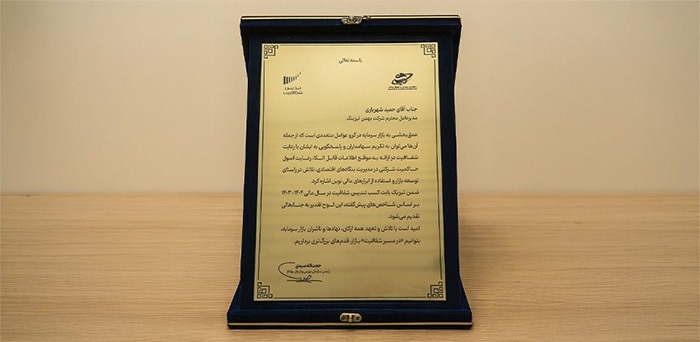 باسمه تعالی
جناب آقای حمید شهریاری
مدیرعامل محترم شرکت بهمن لیزینگ
عمق‌بخشی به بازار سرمایه در گرو عوامل متعددی است که از جمله
آن‌ها می‌توان به تکریم سهامداران و پاسخگویی به ایشان با رعایت
شفافیت در ارائه به موقع اطلاعات قابل اتکا، رعایت اصول
حاکمیت شرکتی در مدیریت بنگاه‌های اقتصادی، تلاش در راستای
توسعه بازار و استفاده از ابزارهای مالی نوین اشاره کرد.
ضمن تبریک بابت کسب تندیس شفافیت در سال مالی ۱۴۰۴-۱۴۰۳
بر اساس شاخص‌های پیش‌گفته، این لوح تقدیر به جنابعالی
تقدیم می‌شود.
امید است با تلاش و تعهد همه ارکان، نهادها و ناشران بازار سرمایه،
بتوانیم «در مسیر شفافیت» بازار، قدم‌های بزرگ‌تری برداریم.
حجت‌اله صیدی
رئیس سازمان بورس و اوراق بهادار